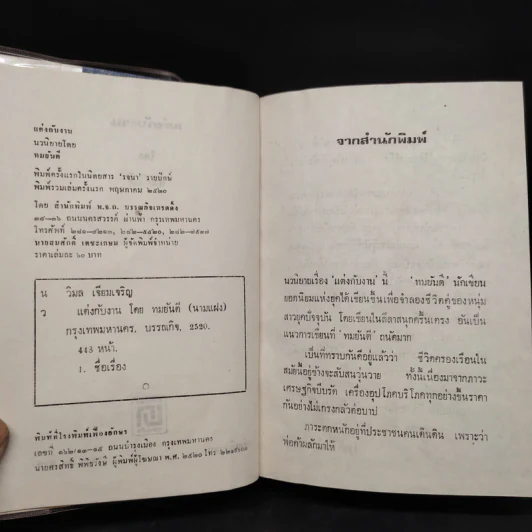 แต่งกับงาน
นวนิยายโดย
ทมยันตี
พิมพ์ครั้งแรกในนิตยสาร "รจนา" รายปักษ์
พิมพ์รวมเล่มครั้งแรก พฤษภาคม ๒๕๒๐
โดย สำนักพิมพ์ บรรณกิจเทรดดิ้ง
ถนนนครสวรรค์ ผ่านฟ้า กรุงเทพมหานคร
โทรศัพท์
ผู้จัดพิมพ์จำหน่าย
ราคาเล่มละ ๖๐ บาท
น วิมล เจียมเจริญ
ว แต่งกับงาน โดย ทมยันตี (นามแฝง)
กรุงเทพมหานคร, บรรณกิจ, 2520.
443 หน้า.
1. ชื่อเรื่อง
พิมพ์ที่โรงพิมพ์เฟื่องอักษร
เลขที่ ถนนบำรุงเมือง กรุงเทพมหานคร
ผู้พิมพ์ผู้โฆษณา พ.ศ. ๒๕๒๐ โทร
จากสำนักพิมพ์
นวนิยายเรื่อง "แต่งกับงาน" นี้ "ทมยันตี" นักเขียน
ยอดนิยมแห่งยุคได้เขียนขึ้นเพื่อจำลองชีวิตคู่ของหนุ่ม
สาวยุคปัจจุบัน โดยเขียนในลีลาสนุกครื้นเครง อันเป็น
แนวการเขียนที่ "ทมยันตี" ถนัดมาก
เป็นที่ทราบกันดีอยู่แล้วว่า ชีวิตครองเรือนใน
สมัยนี้อยู่ข้างจะสับสนวุ่นวาย ทั้งนี้เนื่องมาจากภาวะ
เศรษฐกิจบีบรัด เครื่องอุปโภคบริโภคทุกอย่างขึ้นราคา
กันอย่างไม่เกรงกลัวต่อบาป
ภาระตกหนักอยู่ที่ประชาชนคนเดินดิน เพราะว่า
พ่อค้าผลักมาให้